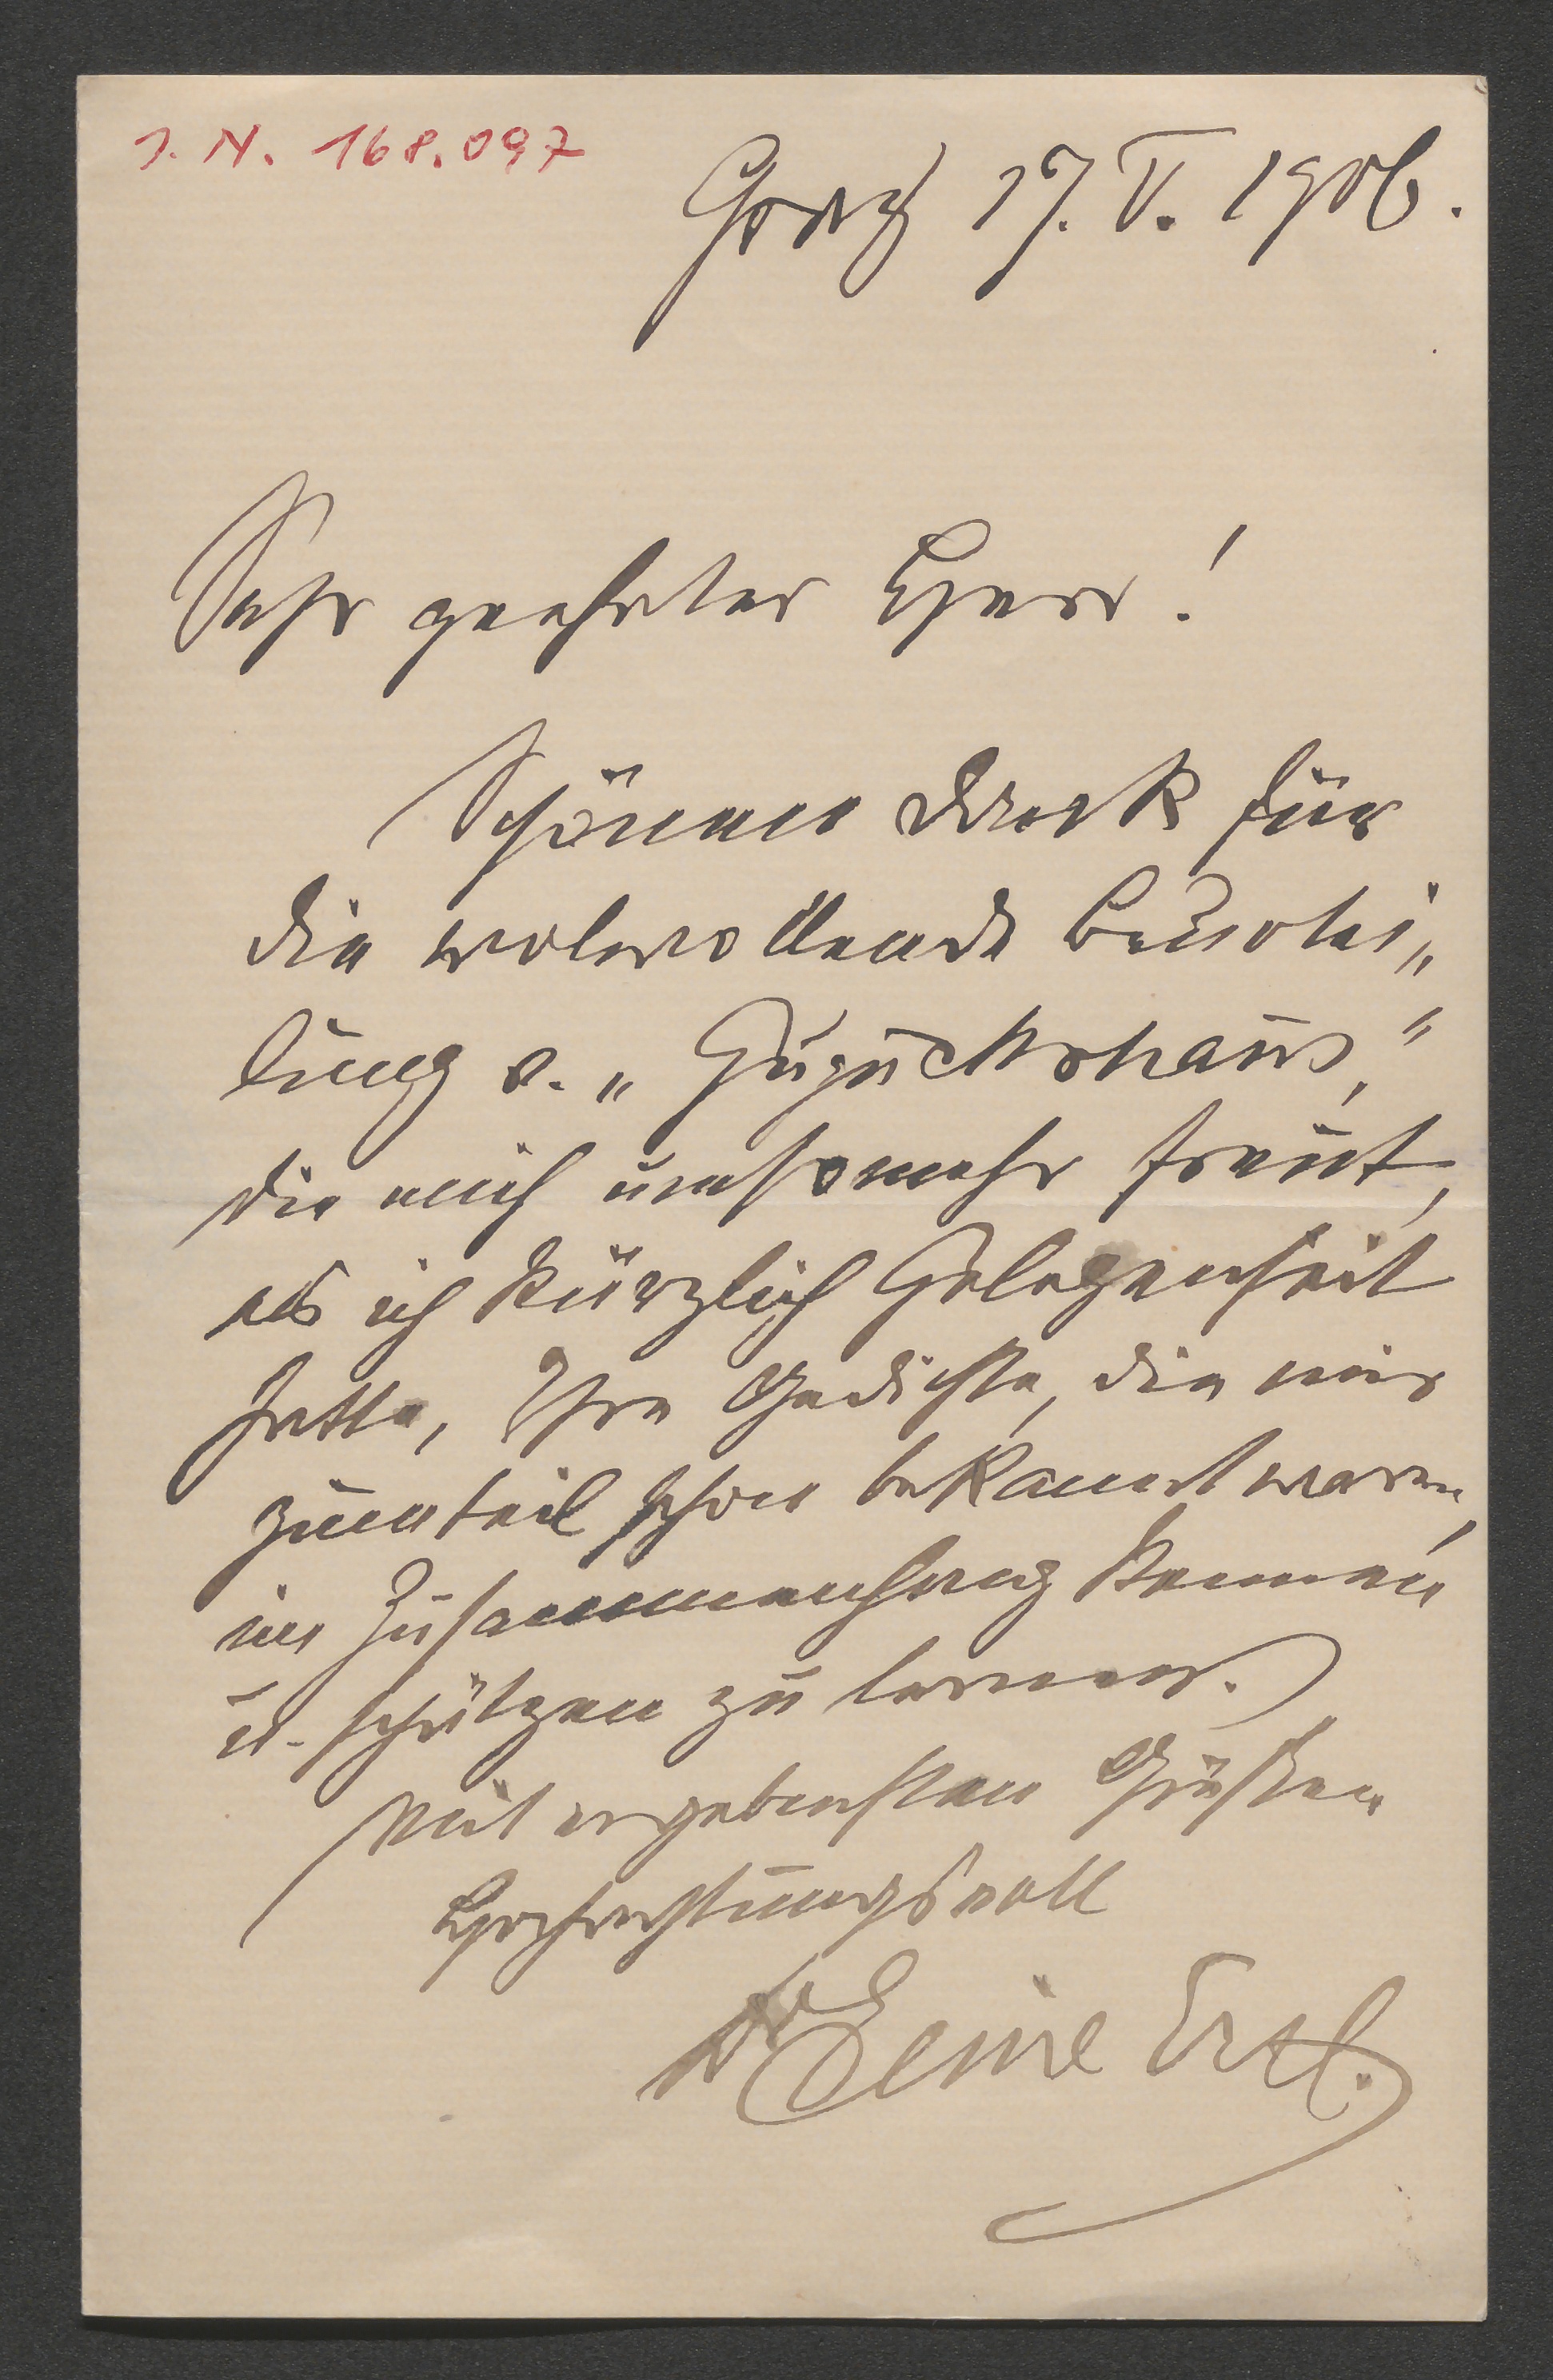 J. N. 168.097
Graz 17. V. 1906.
Sehr geehrter Herr!
Schönen Dank für
die wolwollende Beurtei„
lung d. „Guguckshaus,“
die mich umsomehr freut,
als ich kürzlich Gelegenheit
hatte, Ihre Gedichte, die mir
zumteil schon bekannt waren,
im Zusammenhang kennen
u. schätzen zu lernen.
Mit ergebensten Grüßen
Hochachtungsvoll
Dr Emil Ertl.